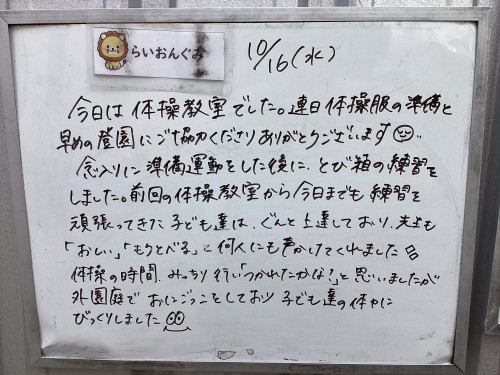 らいおんぐみ
10/16(水)
今日は体操教室でした。連日体操服の準備と
早めの登園にご協力くださりありがとうございます
念入りに準備運動をした後に、とび箱の練習を
しました。前回の体操教室から今日までも練習を
頑張ってきた子ども達は、ぐんと上達しており、先生も
「おしい」「もうとべる」と何人にも声かけてくれました
体操の時間、みっちり行い「つかれたかな?」と思いましたが
外園庭でおにごっこをしており子ども達の体力に
びっくりしました